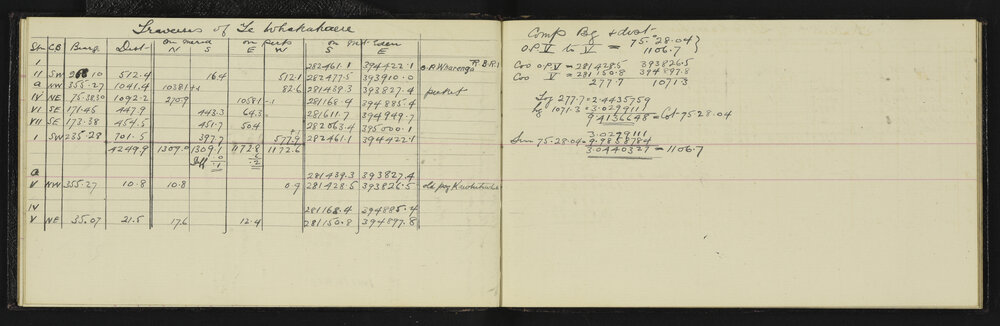 Traverse of Te Whakahaere
on Merid on Perp on Mt Eden
Stn C.B Bearg Dist N S E W S E
I 282461.1 394422.1 O.P. Wharenga R.B.R.1
II SW 268 10 512.4 16.4 512.1 282477.5 393910.0
a NW 355.27 1041.4 1038.1 82.6 281439.3 393827.4 picket
IV NE 75.3830 1092.2 270.9 1058.1 281168.4 394885.4
VI SE 171.45 447.9 443.3 64.3 281611.7 394949.7
VII SE 173.38 454.5 451.7 50.4 282063.4 395000.1
I SW 235.28 701.5 397.7 577.9 282461.1 394422.1
4249.9 1309.0 1309.1 1172.8 1172.6
Diff .0 .6
.1 .2
a 281439.3 393827.4
V NW 355.27 10.8 10.8 0.9 281428.5 393826.5 old peg
IV 281168.4 394885.4
V NE 35.07 21.5 17.6 12.4 281150.8 394897.8
Comp Bg & dist
O.P.V to V = 75.28.04
1106.7
Coo O.P.V = 281428.5 393826.5
Coo V = 281150.8 394897.8
277.7 1071.3
Log 277.7 = 2.4435759
log 1071.3 = 3.0299111
9.4136648 = Cot 75 28.04
3.0299111
Sine 75.28.04 = 9.9858784
3.0440327 = 1106.7